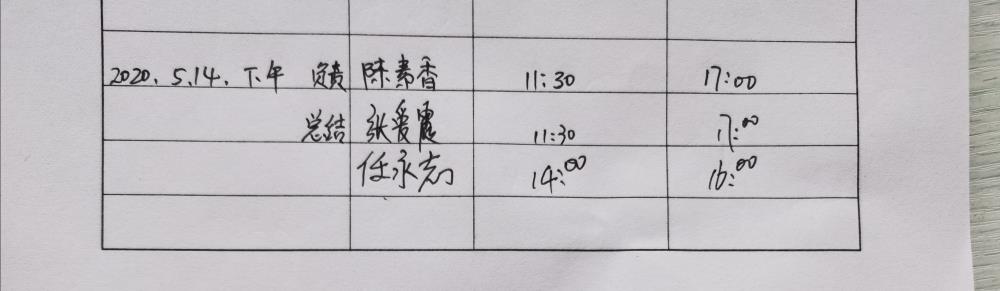 2020.5.14.下午 负责 陈素香 11:30 17:00
总结 张爱霞 11:30 17:00
任永志 14:00 16:00